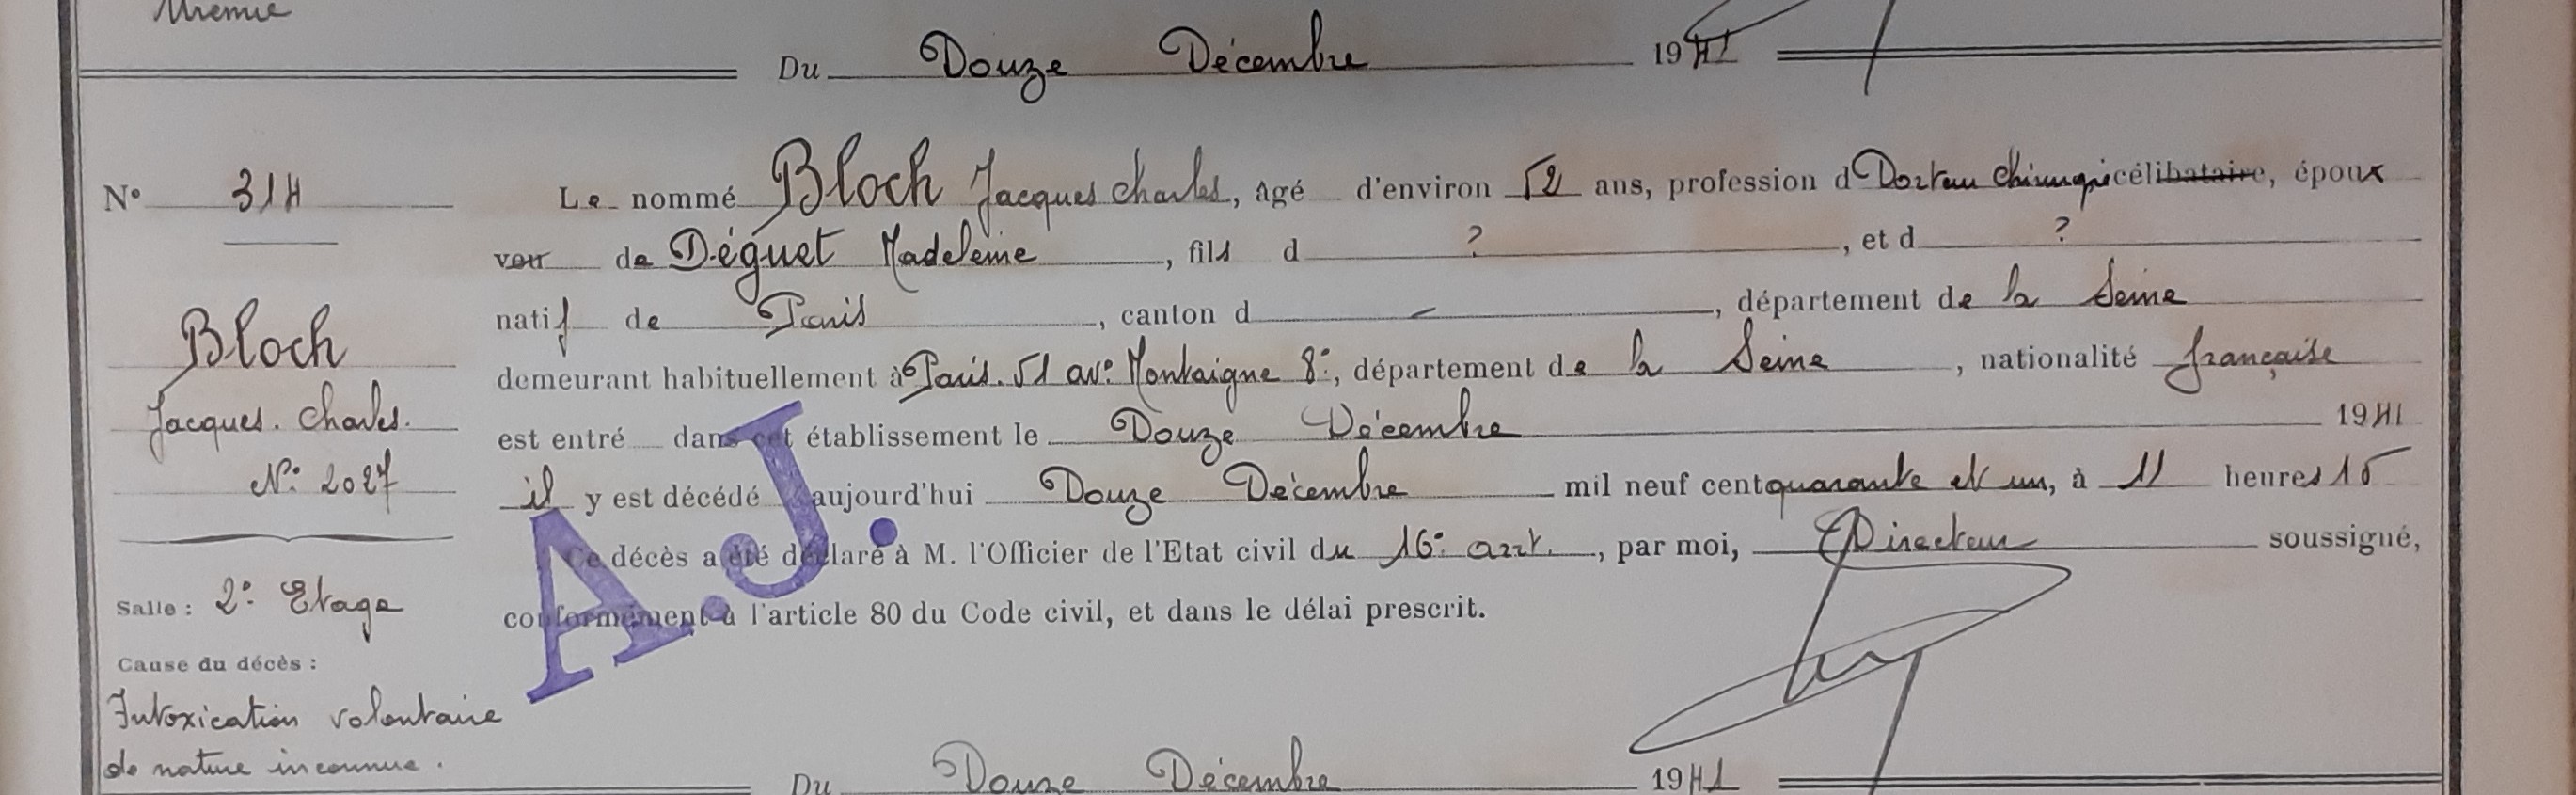 Urémie
Du Douze Décembre 1941
N° 314
Le nommé Bloch Jacques Charles, âgé d'environ 52 ans, profession d Docteur Chirurgie célibataire, époux
veu de Déguet Madeleine, fils d ?, et d ?
natif de Paris, canton d -, département de la Seine
demeurant habituellement à Paris. 51 av. Montaigne 8e, département de la Seine, nationalité française
est entré dans cet établissement le Douze Décembre 1941
il y est décédé aujourd'hui Douze Décembre mil neuf cent quarante et un, à 11 heures 15
Ce décès a été déclaré à M. l'Officier de l'Etat civil du 16e arrt., par moi, Directeur soussigné,
conformément à l'article 80 du Code civil, et dans le délai prescrit.
A.J.
Bloch
Jacques. Charles.
N° 2027
Salle : 2e Etage
Cause du décès :
Intoxication volontaire
de nature inconnue.
Du Douze Décembre 1941